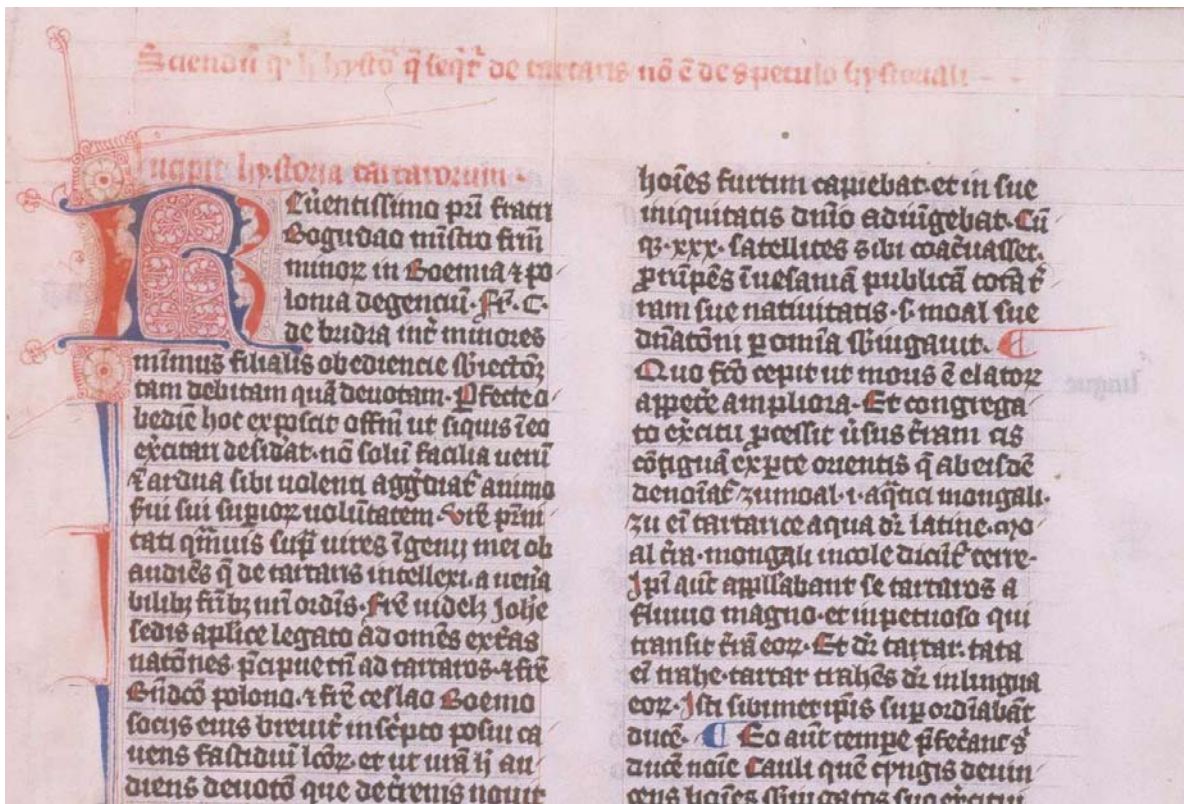 Sciendū qꝫ h̄ hysto᷒ q̄ seqr̄ de tartaris nō ē de speculo hystoriali
Incipit hystoria tartarorum.
Reuentissimo pr̄i fratri
Bogudao mīstro frm̄
minoꝝ in Boemia ⁊ po
lonia degenciū. Fr̄. C.
de bridia int̄ minores
mīmus filialis obediencie sb̄iectōꝫ
tam debitam quā deuotam. ꝑfecte o
bediē hoc exposcit offm̄ ut siquis ī eo
exc̄itari desid̓at. nō solū facilia ueru
⁊ ardua sibi uolenti agḡdiat᷒ animo
sui suꝑioꝝ uolūtatem. Vr̄e pr̄ni
tati qm̄uis suꝑ uires īgenij mei ob
audiēs q̄ de tartaris intellexi. a uen̓a
bilibꝫ fr̄ibꝫ nr̄i ordīs. fr̄e uidelꝫ Joh̄e
sedis ap̄lice legato ad om̄es ext̓as
natōnes p̄cipue tn̄ ad tartaros. ⁊ fr̄e
Bn̄dcō polono. ⁊ fr̄e ceslao Boemo
socijs eius breuit̓ in sc̓pto posui ca
uens fastidiū lc̄oꝝ. et ut ur̄a h̄ au
diens deuotō que de t̓renis nouit
hoīes furtim capiebat. et in sue
iniquitatis dn̄io adiūgebat. Cū
qꝫ .xxx. satellites sibi coac̓uasset.
ꝓrūpēs ī uesaniā publicā totā t̓
ram sue natiuitatis .s. moal sue
dn̄atōni ꝑ omīa sb̄iugauit.
Quo fc̄o cepit ut moris ē elatoꝝ
appet̓e ampliora. Et congrega
to exc̓itu ꝓcessit ūsus t̓ram eis
cōtiguā ex ꝑte orientis q̄ ab eisdē
denoīat᷒ zumoal .i. aq̄tici mongali.
zu eī tartarice aqua dr̄ latine. mo
al t̓ra. mongali incole dicūt᷒ terre.
Ip̄i aūt appllabant se tartaros a
fluuio magno. et inpetuoso qui
transit t̓rā eoꝝ. Et dr̄ tartar. tata
eī trahe. tartar trahēs dr̄ in lingua
eoꝝ. Isti sibimet ip̄is suꝑ ordīabāt
ducē. Eo aūt tempe p̄fec̓ant s̄
ducē noīe Cauli quē cyngis deuin
cens hoīes sb̄iugatos suo exc̓itui